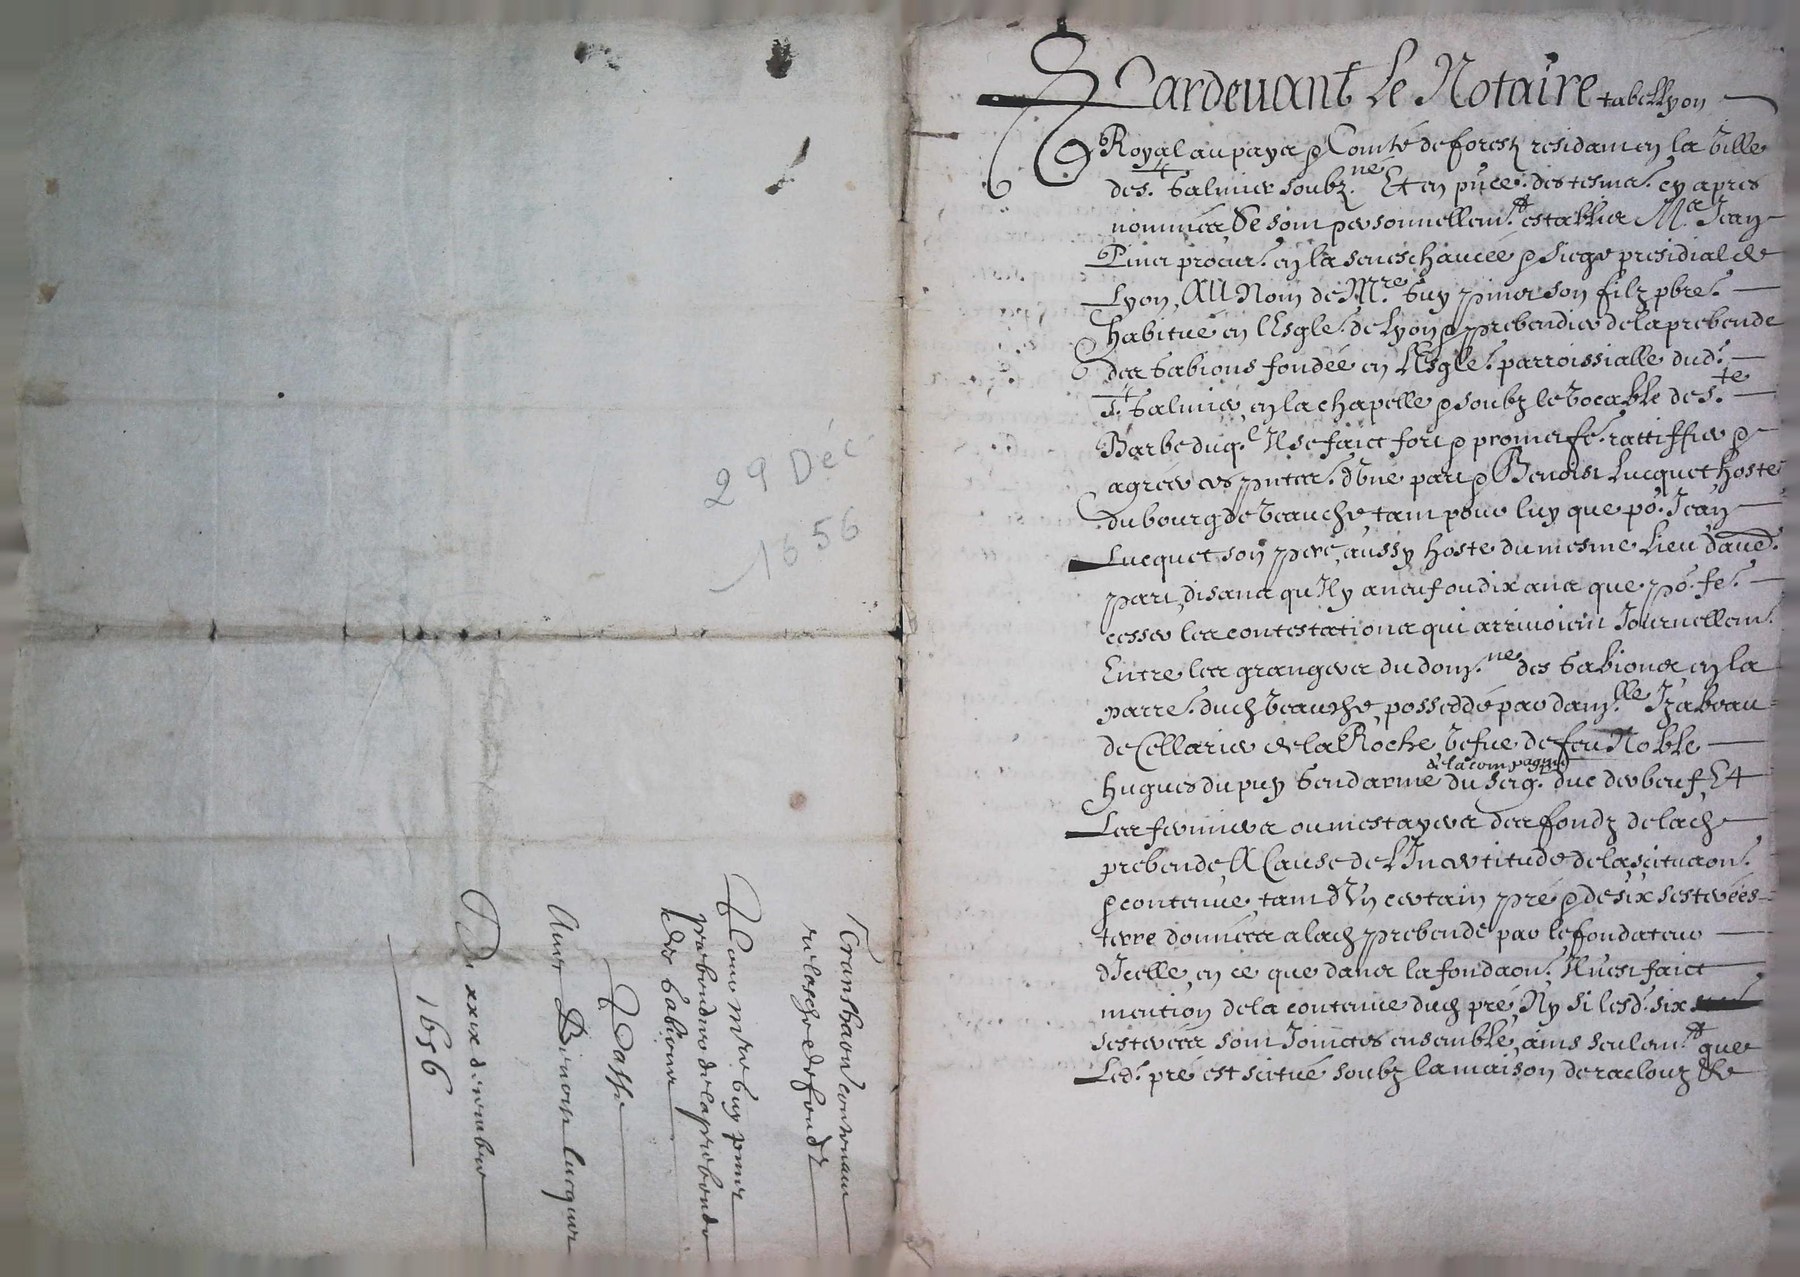 29 Déc
1656
Transhaon contenant
relasche de fondz
Pour Mre Guy pinet
prebendier de la prebende
des Gabions
Passé
Avec Benoist Lucquet
Du xxix decembre
1656
Pardevant le Notaire tabellyon
Royal au payx & Comté de forestz residant en la ville
de St. Galmier soubz.né Et en pnce. des tesmz. cy apres
nommez, Se sont personnellemt. establiz Mr Jean
Pinet procur. en la seneschaucée & siege presidial de
Lyon, AU Nom de Mre. Guy pinet son filz pbre.
habitué en l'Esgle. de Lyon & prebendier de la prebende
des Gabions fondée en l'Esgle. parroissialle dud.
St. Galmier, en la chapelle & soubz le vocable de Ste
Barbe duql. Il se faict fort & promet fe. rattiffier &
agréer ces pntes. d'une part & Benoist Lucquet hoste
du bourg de Veauche, tant pour luy que po. Jean
Lucquet son pere, aussy hoste du mesme lieu d'aue.
part, disans qu'Il y a neuf ou dix ans que po. fe.
cesser les contestations qui arrivoient Journellemt.
Entre les grangers du dom.ne des Gabions en la
parre. dud Veauche, possedé par dam.lle Izabeau
de Cellarier de la Roche, vefue de feu Noble
de la compagnie
hugues du puy Gendarme du seig. duc d'Elbeuf, Et
Les fermiers ou mestayers des fondz de lad
prebende, A Cause de l'Incertitude de la scituaon.
& contenue, tant d'Un certain pré & de six sesterées
terre données a lad prebende par le fondateur
d'Icelle, en ce que dans la fondaon. Il n'est faict
mention de la contenue dud pré, Ny si lesd. six
sesterées sont Joinctes ensemble, ains seulemt. que
Led. pré est scitué soubz la maison de racloux de